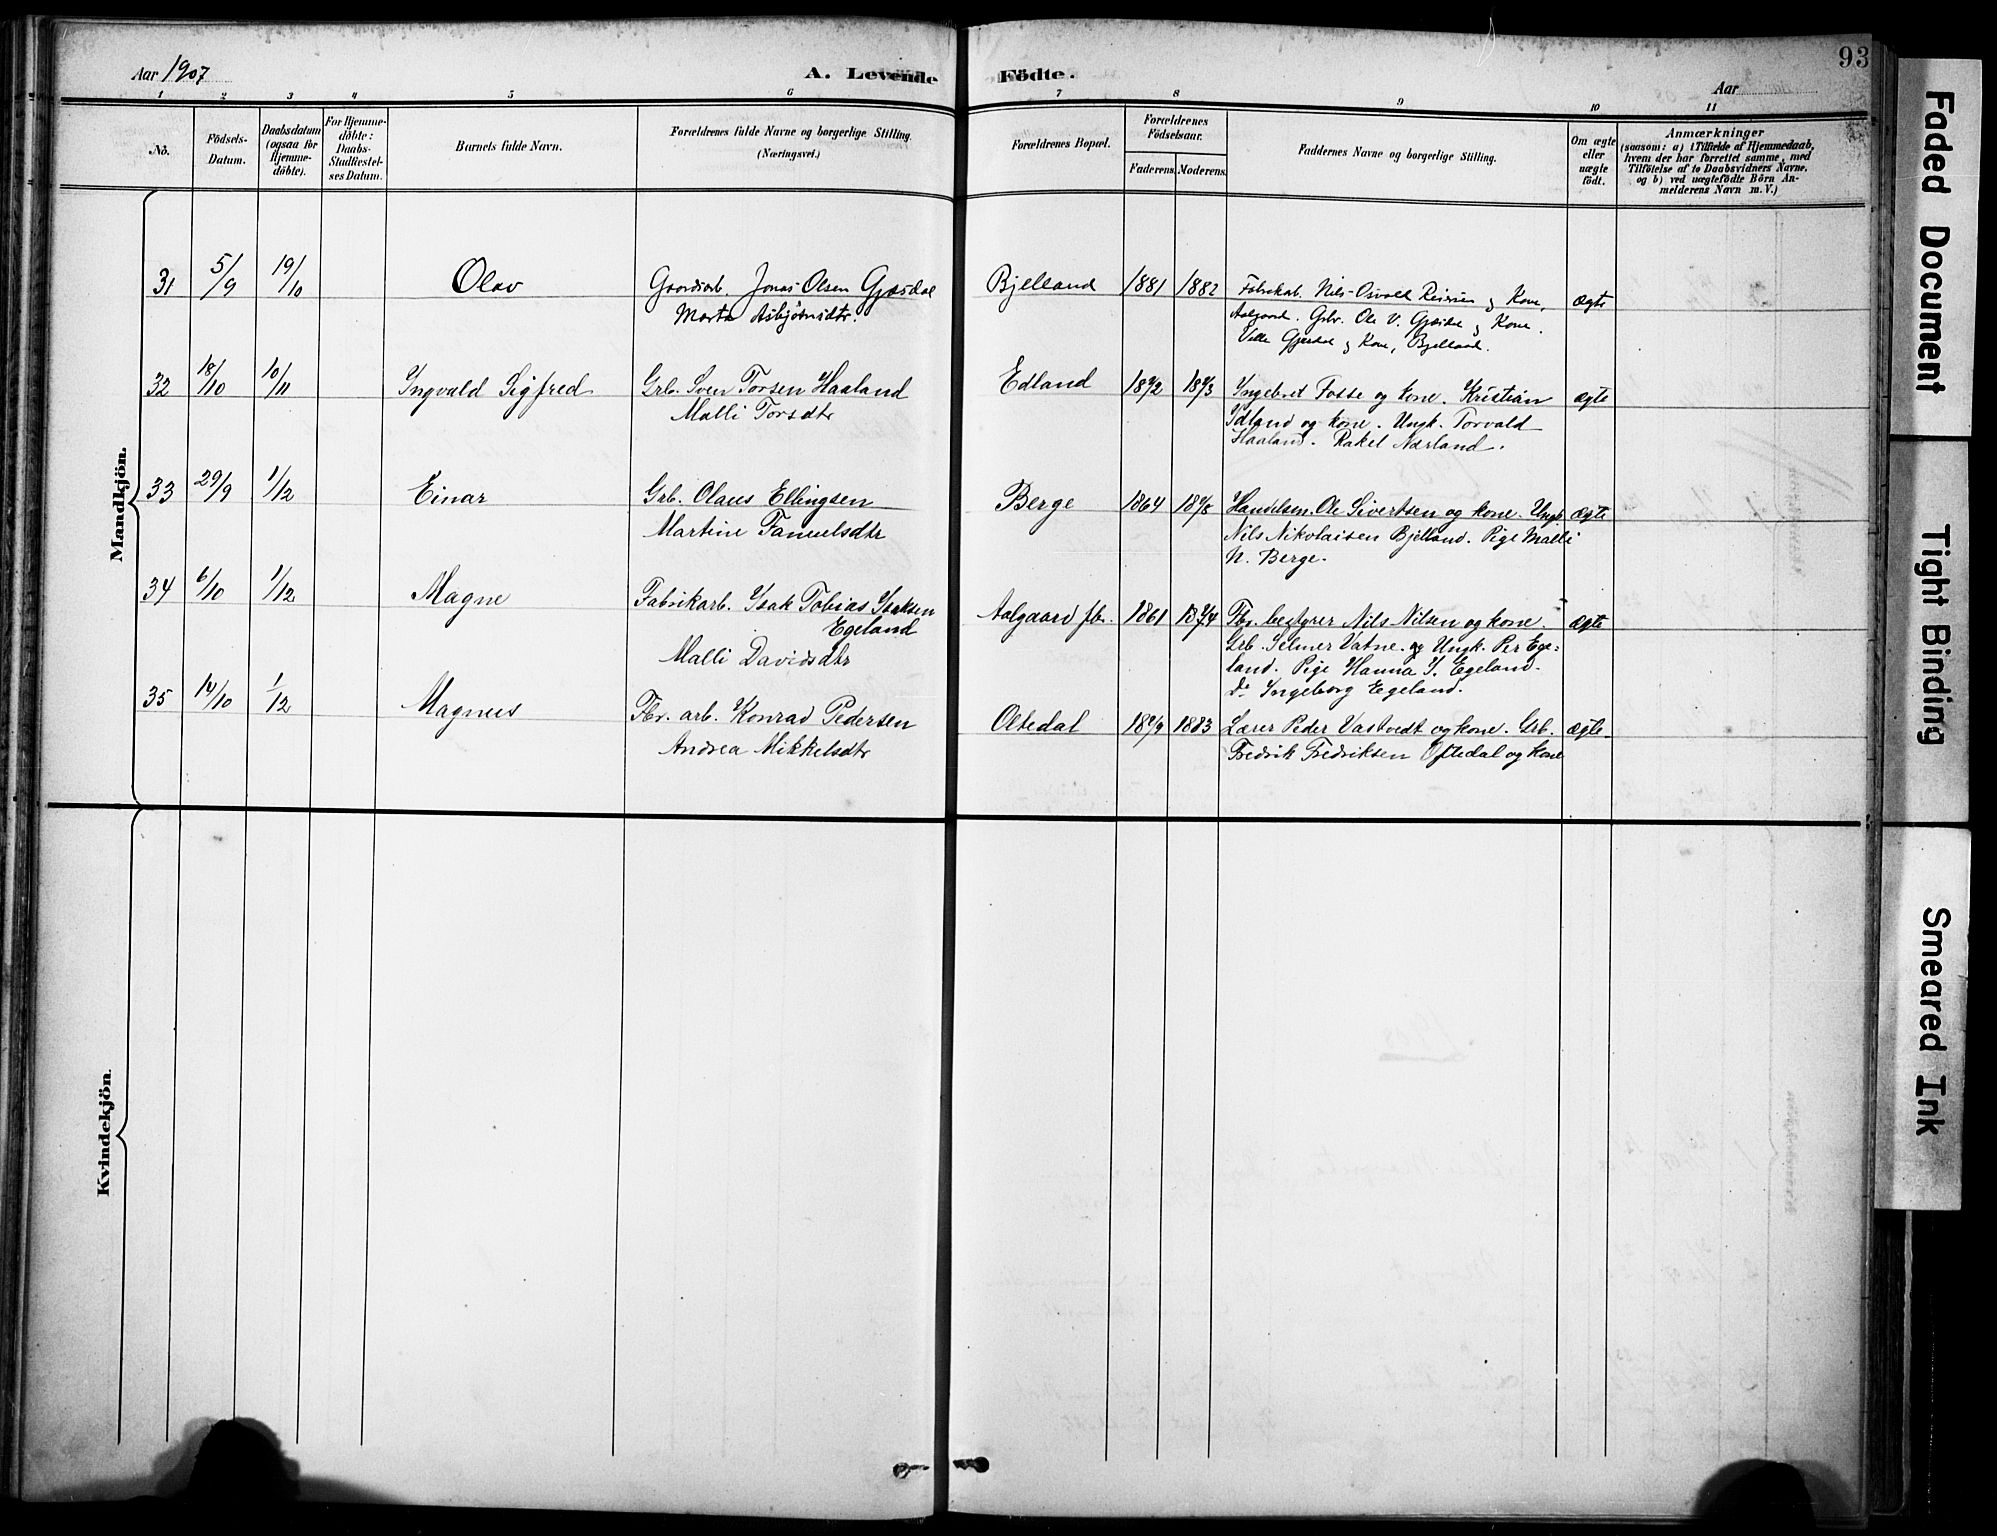 93
Aar 1907 A. Levende Födte. Aar
1 2 3 4 5 6 7 8 9 10 11
No.
Födsels-
Datum.
Daabsdatum
(ogsaa for
Hjemme-
döbte).
For Hjemme-
döbte:
Daabs-
Stadfæstel-
ses Datum.
Barnets fulde Navn.
Forældrenes fulde Navne og borgerlige Stilling.
(Næringsvei.)
Forældrenes Bopæl.
Forældrenes
Födselsaar.
Faderens. Moderens.
Faddernes Navne og borgerlige Stilling.
Om ægte
eller
uægte
födt.
Anmærkninger
(saasom: a) i Tilfælde af Hjemmedaab,
hvem der har forrettet samme, med
Tilföielse af to Daabsvidners Navne,
og b) ved uægtefödte Börn An-
melderens Navn m. V.)
Mandkjön.
31 5/9 19/10 Olav Gaardarb. Jonas Olsen Gjesdal Bjelland 1881 1882 Fabrikab. Nils Osvald Reiersen og Kone, ægte
Marta Asbjörnsdtr. Aalgaard. Grbr. Ole V. Gjesdal og Kone.
Ville Gjesdal og Kone, Bjelland.
32 18/10 10/11 Ingvald Sigfred Grb. Sven Torsen Haaland Edland 1872 1873 Ingebret Fosse og kone. Kristian ægte
Malli Torsdtr Idland og kone. Ungk. Torvald
Haaland. Rakel Nærland.
33 29/9 1/12 Einar Grb. Olaus Ellingsen Berge 1864 1878 Handelsm. Ole Sivertsen og kone. Ungk. ægte
Martine Samuelsdtr Nils Nikolaisen Bjelland. Pige Malli
N. Berge.
34 6/10 1/12 Magne Fabrikarb. Isak Tobias Isaksen Aalgaard fbr. 1861 1874 Fbr. bestyrer Nils Nilsen og kone. ægte
Egeland Grb. Selmer Vatne. og Ungk. Per Ege=
Malli Davidsdtr land. Pige Hanna I. Egeland.
Do Ingeborg Egeland.
35 14/10 1/12 Magnus Fbr. arb. Konrad Pedersen Oltedal 1879 1883 Lærer Peder Vastvedt og kone. Grb. ægte
Andrea Mikkelsdtr Fredrik Fredriksen Oftedal og kone
Kvindekjön.
Faded Document
Tight Binding
Smeared Ink